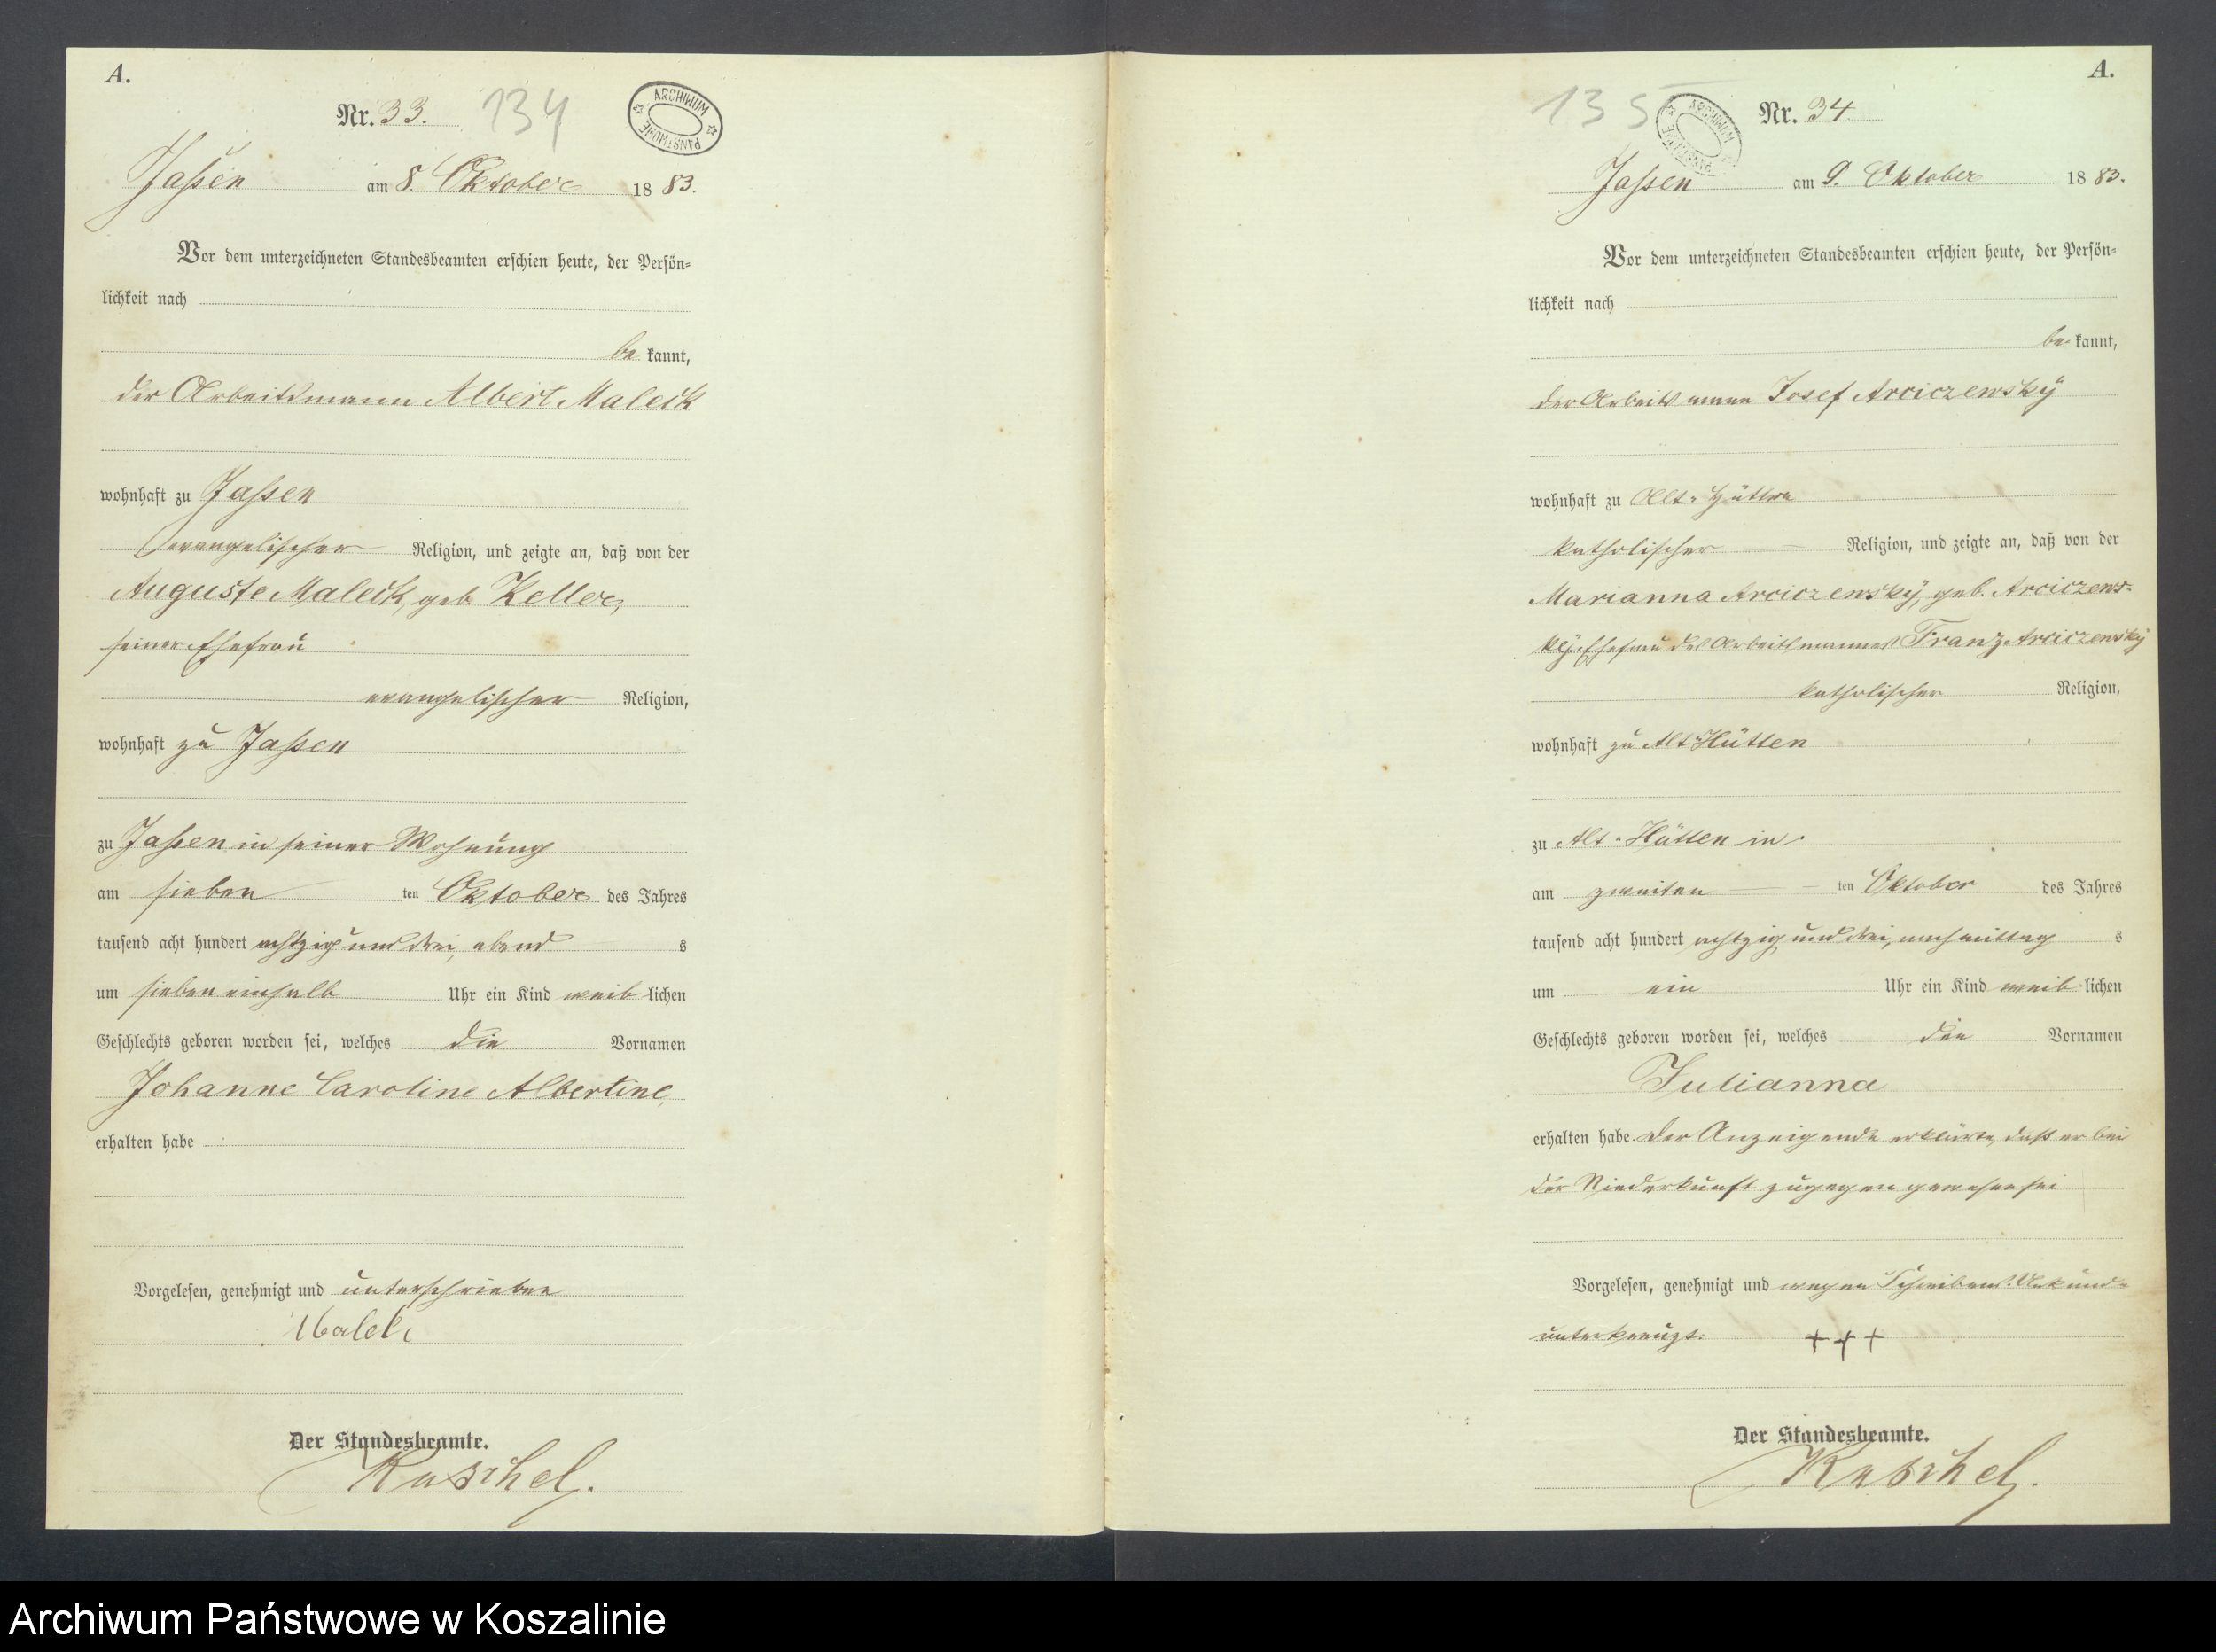 A.
Nr. 33. 134
ARCHIWUM PAŃSTWOWE
Jaßen am 8. Oktober 1883.
Vor dem unterzeichneten Standesbeamten erschien heute, der Persön-
lichkeit nach
be kannt,
der Arbeitsmann Albert Maleck
wohnhaft zu Jaßen
evangelischer Religion, und zeigte an, daß von der
Auguste Maleck, geb Keller,
seiner Ehefrau
evangelischer Religion,
wohnhaft zu Jaßen
zu Jaßen in seiner Wohnung
am sieben ten Oktober des Jahres
tausend acht hundert achtzig und drei, abend s
um sieben einhalb Uhr ein Kind weib lichen
Geschlechts geboren worden sei, welches die Vornamen
Johanne Caroline Albertine,
erhalten habe
Vorgelesen, genehmigt und unterschrieben
Der Standesbeamte.
Kuschel.
A.
135 Nr. 34
ARCHIWUM
Jaßen am 9. Oktober 1883.
Vor dem unterzeichneten Standesbeamten erschien heute, der Persön-
lichkeit nach
be- kannt,
der Arbeitsmann Josef Arciczewsky
wohnhaft zu Alt-Hütten
katholischer Religion, und zeigte an, daß von der
Marianna Arciczewsky, geb. Arciczews-
ky, Ehefrau des Arbeitsmannes Franz Arciczewsky
katholischer Religion,
wohnhaft zu Alt Hütten
zu Alt-Hütten in
am zweiten ten Oktober des Jahres
tausend acht hundert achtzig und drei, nachmittag s
um ein Uhr ein Kind weib lichen
Geschlechts geboren worden sei, welches den Vornamen
Julianna
erhalten habe. Der Anzeigende erklärte, daß er bei
der Niederkunft zugegen gewesen sei
Vorgelesen, genehmigt und wegen Schreibens-Unkunde
unterkreuzt. +++
Der Standesbeamte.
Kuschel.
Archiwum Państwowe w Koszalinie